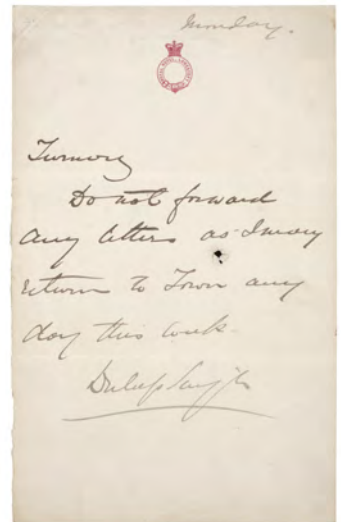 Monday.
Do not forward
any letters as I may
return to Town any
day this week
Duleep Singh